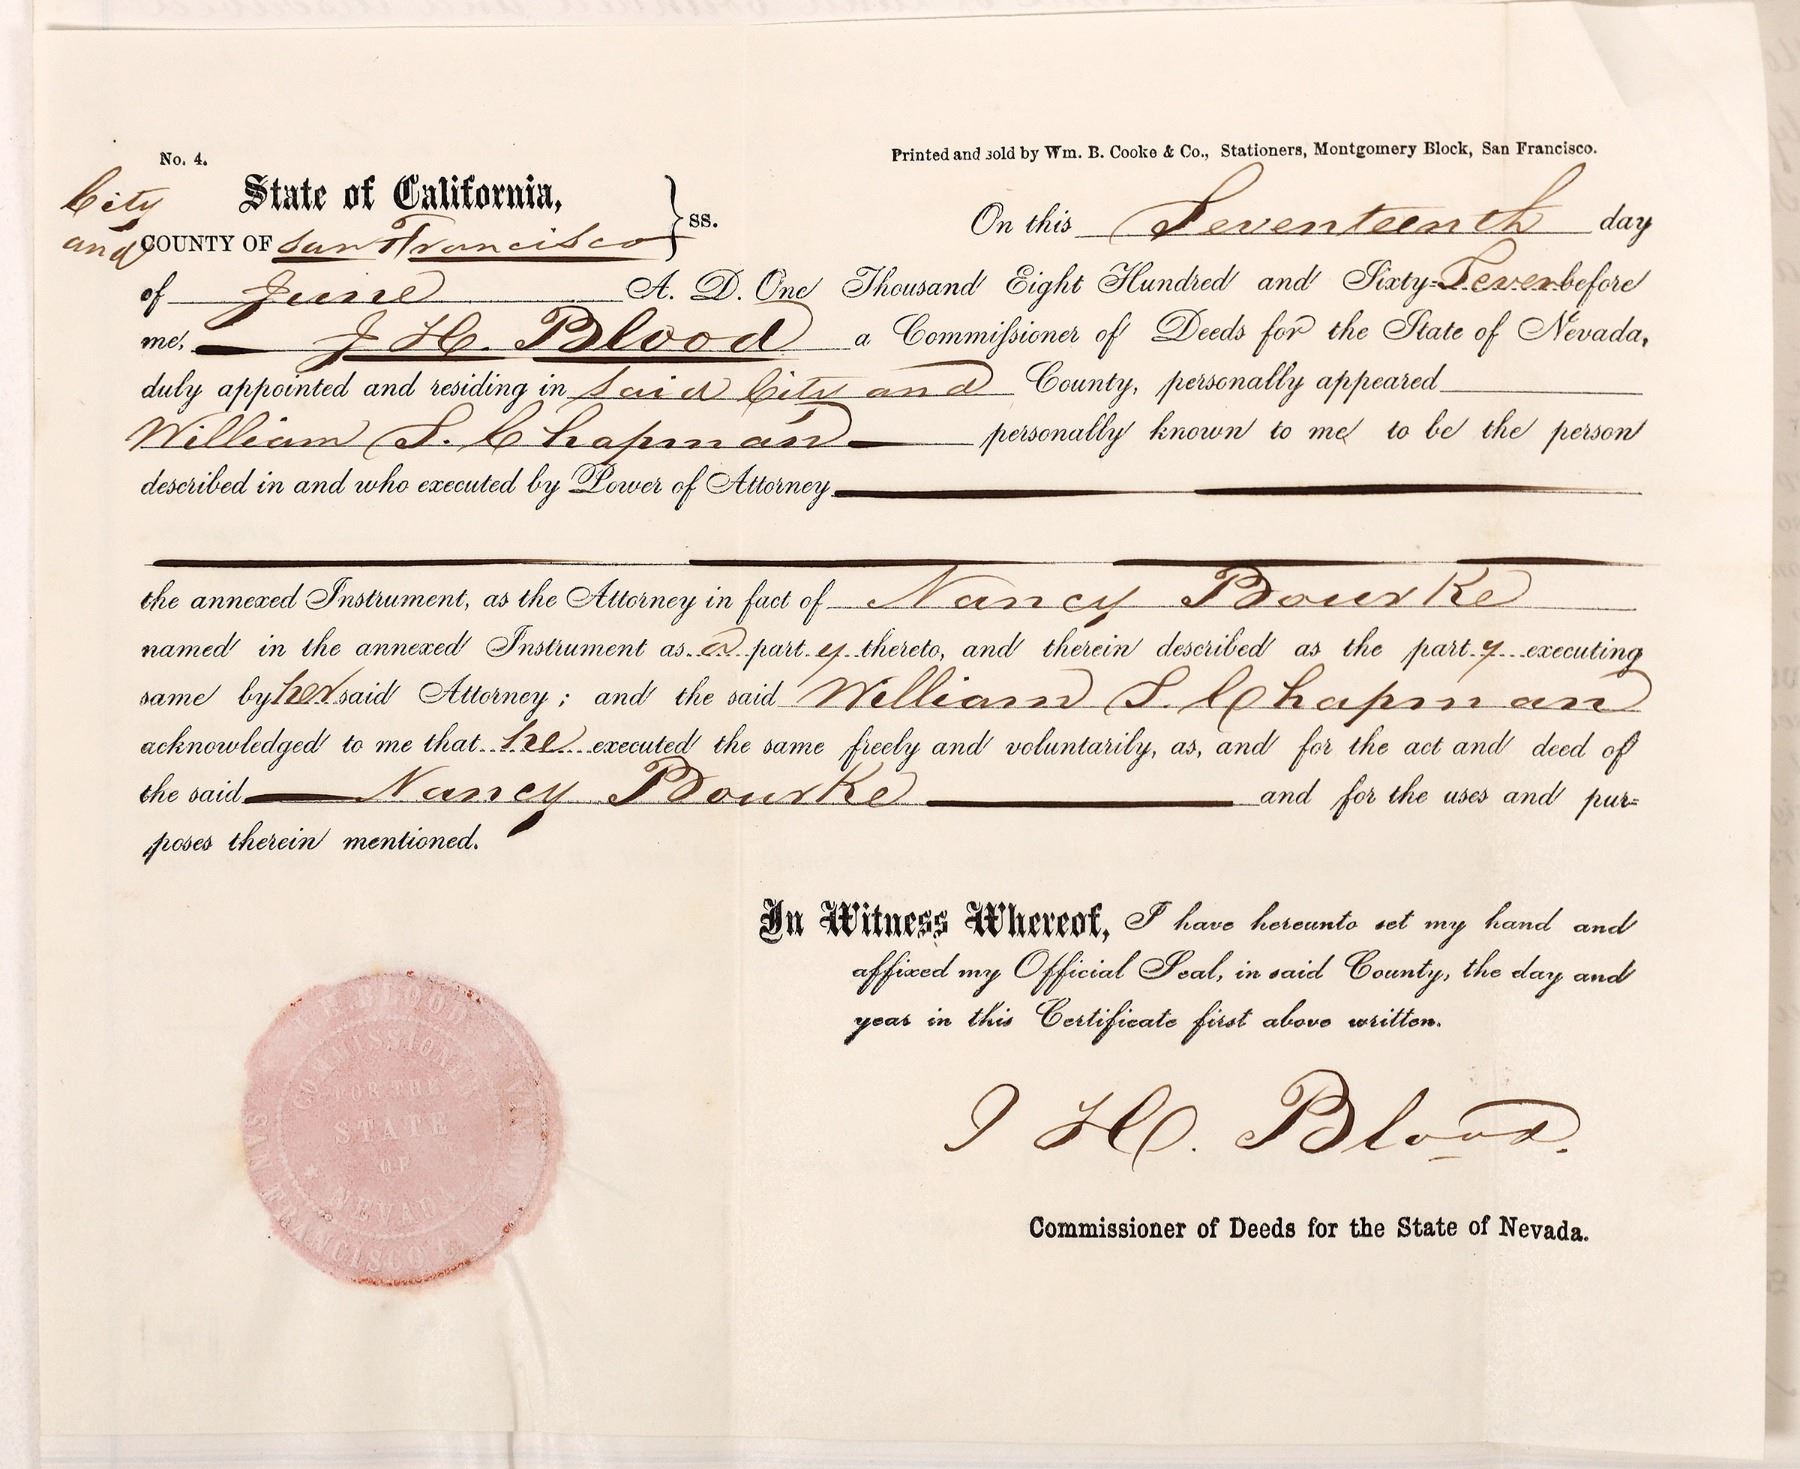 No. 4.
Printed and sold by Wm. B. Cooke & Co., Stationers, Montgomery Block, San Francisco.
City State of California,
and COUNTY OF San Francisco } ss.
On this Seventeenth day
of June A. D. One Thousand Eight Hundred and Sixty-Seven before
me, J H. Blood a Commissioner of Deeds for the State of Nevada,
duly appointed and residing in said City and County, personally appeared
William S. Chapman personally known to me to be the person
described in and who executed by Power of Attorney
the annexed Instrument, as the Attorney in fact of Nancy Bourke
named in the annexed Instrument as a party thereto, and therein described as the party executing
same by her said Attorney; and the said William S. Chapman
acknowledged to me that he executed the same freely and voluntarily, as, and for the act and deed of
the said Nancy Bourke and for the uses and pur=
poses therein mentioned.
In Witness Whereof, I have hereunto set my hand and
affixed my Official Seal, in said County, the day and
year in this Certificate first above written.
J H. Blood.
Commissioner of Deeds for the State of Nevada.
BLOOD
COMMISSIONER
FOR THE
STATE
OF
NEVADA
SAN FRANCISCO